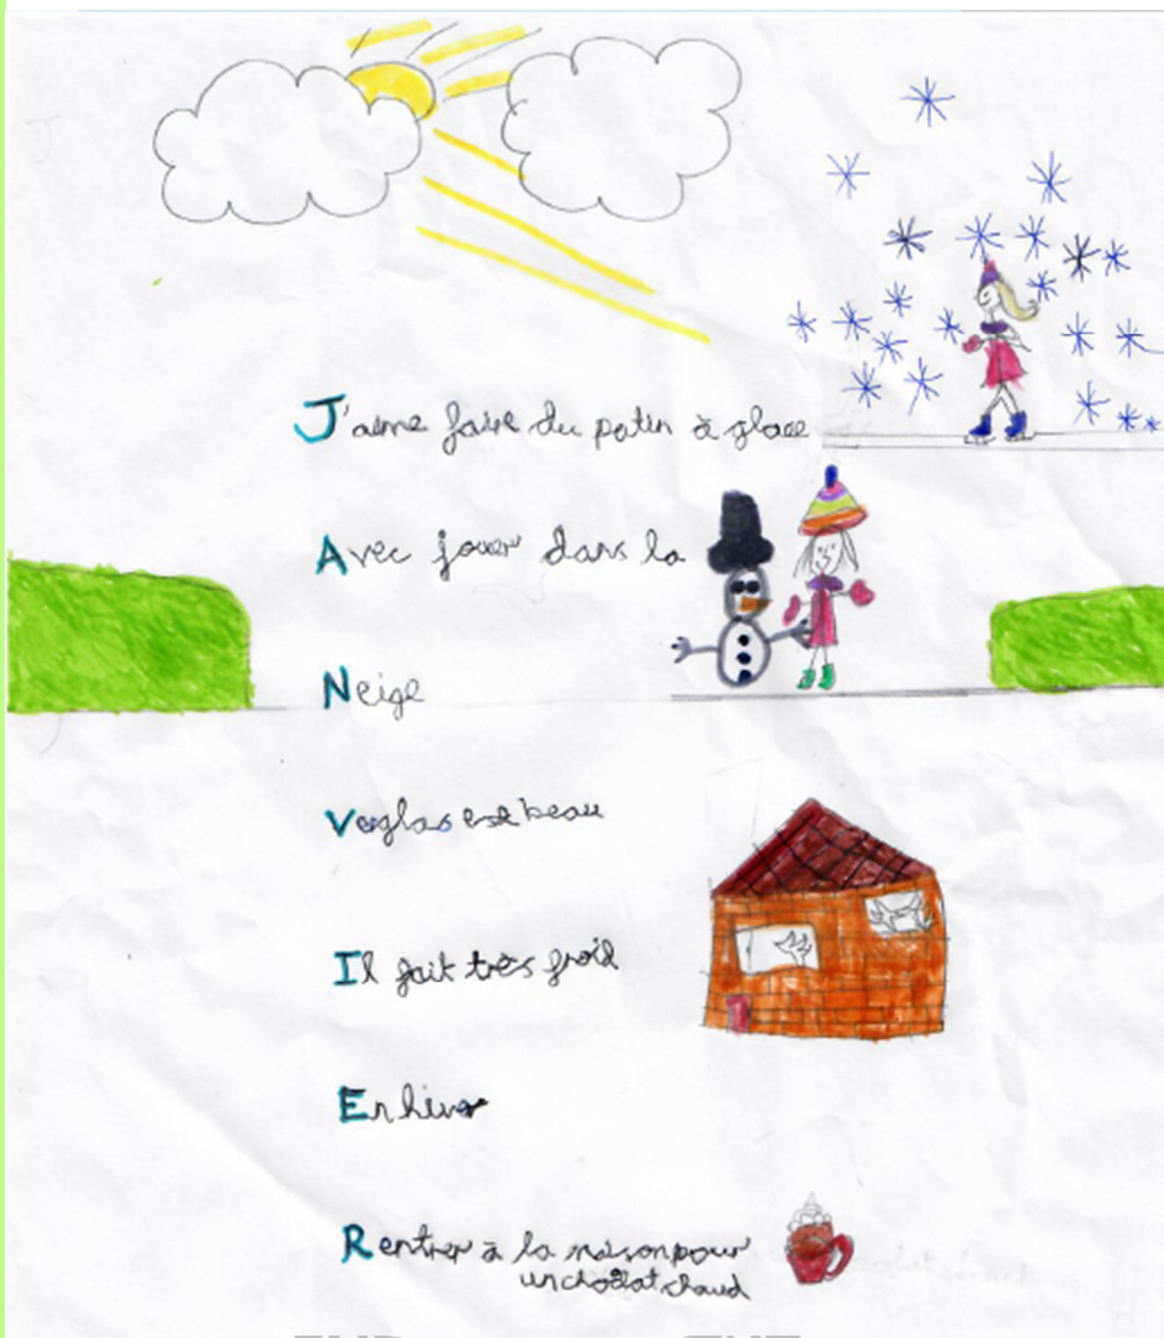 J'aime faire du patin à glace
Avec jouer dans la
Neige
Verglas est beau
Il fait très froid
En hiver
Rentrer à la maison pour
un chocolat chaud